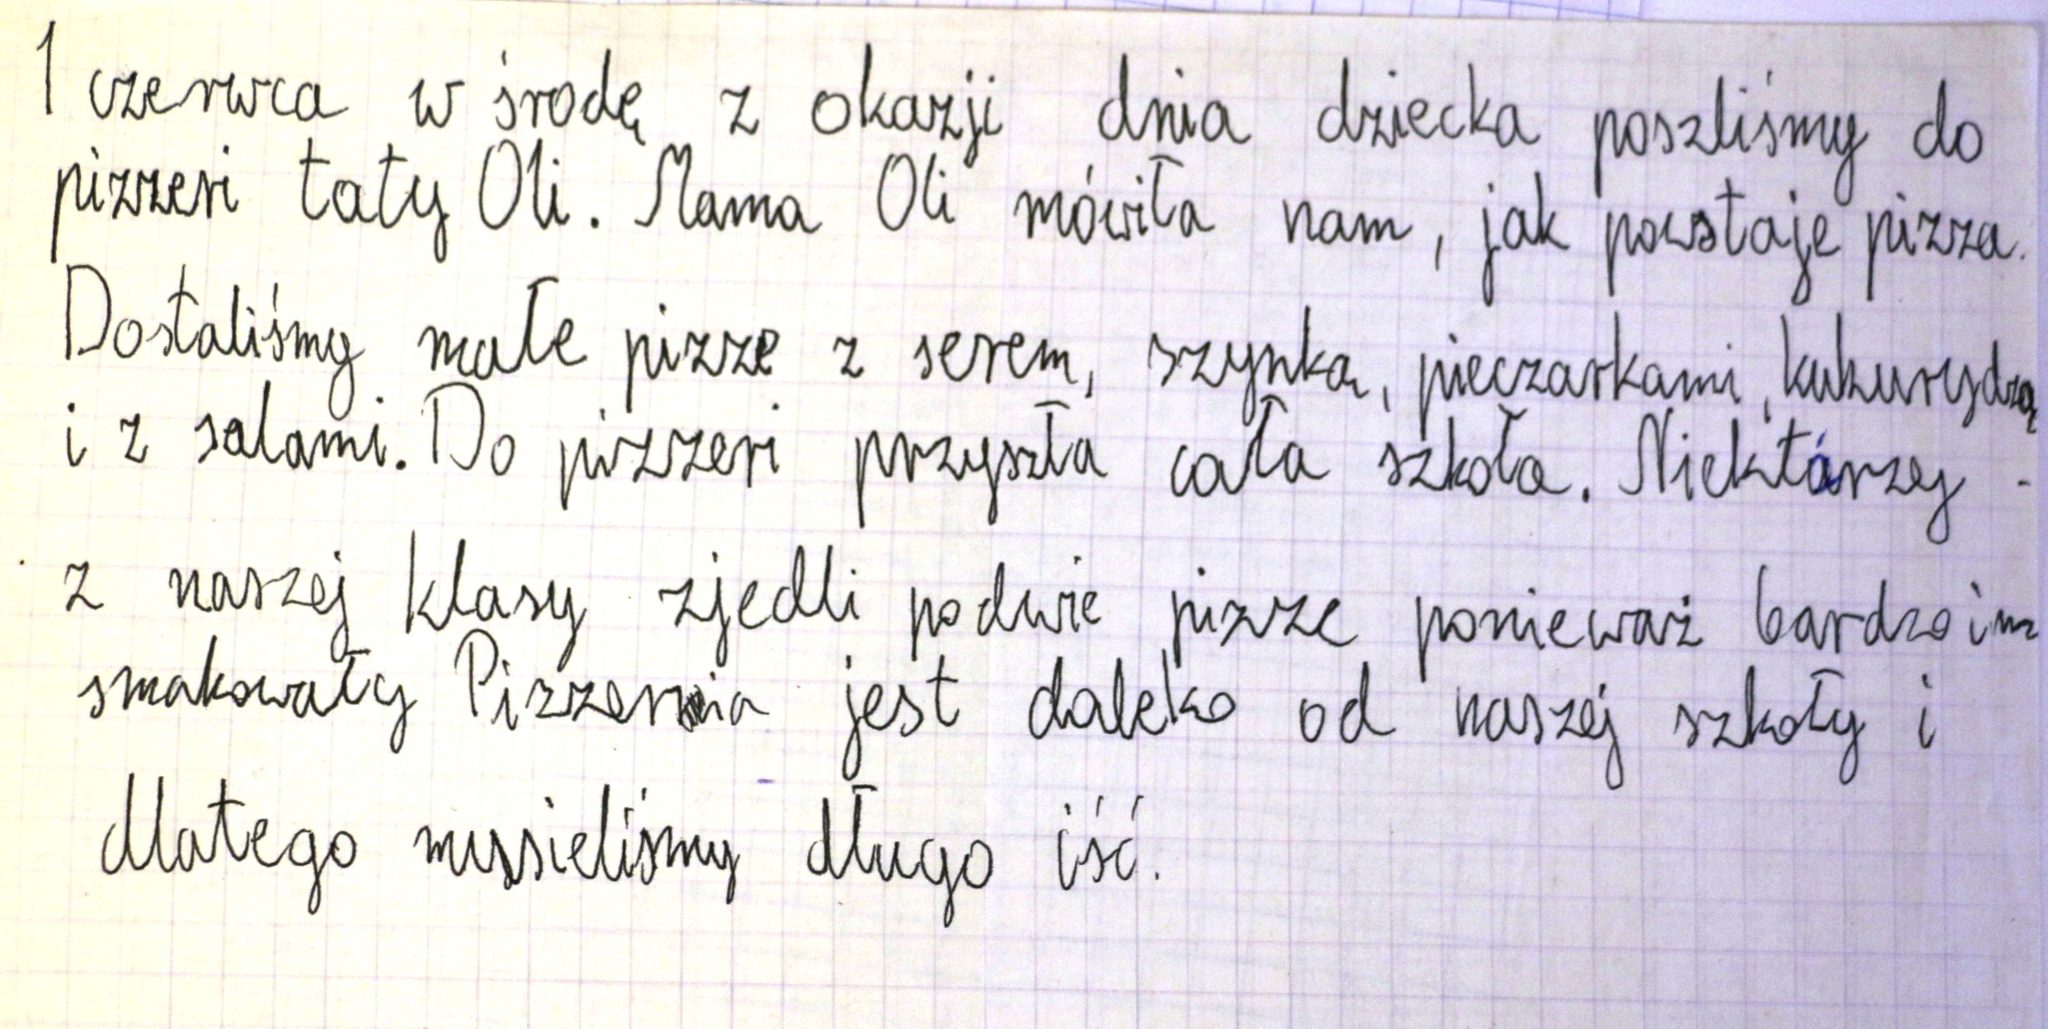 1 czerwca w środę z okazji dnia dziecka poszliśmy do
pizzeri taty Oli. Mama Oli mówiła nam, jak powstaje pizza.
Dostaliśmy małe pizze z serem, szynką, pieczarkami, kukurydzą
i z salami. Do pizzeri przyszła cała szkoła. Niektórzy
z naszej klasy zjedli podwie pizze ponieważ bardzo im
smakowały Pizzernia jest daleko od naszej szkoły i
dlatego musieliśmy długo iść.